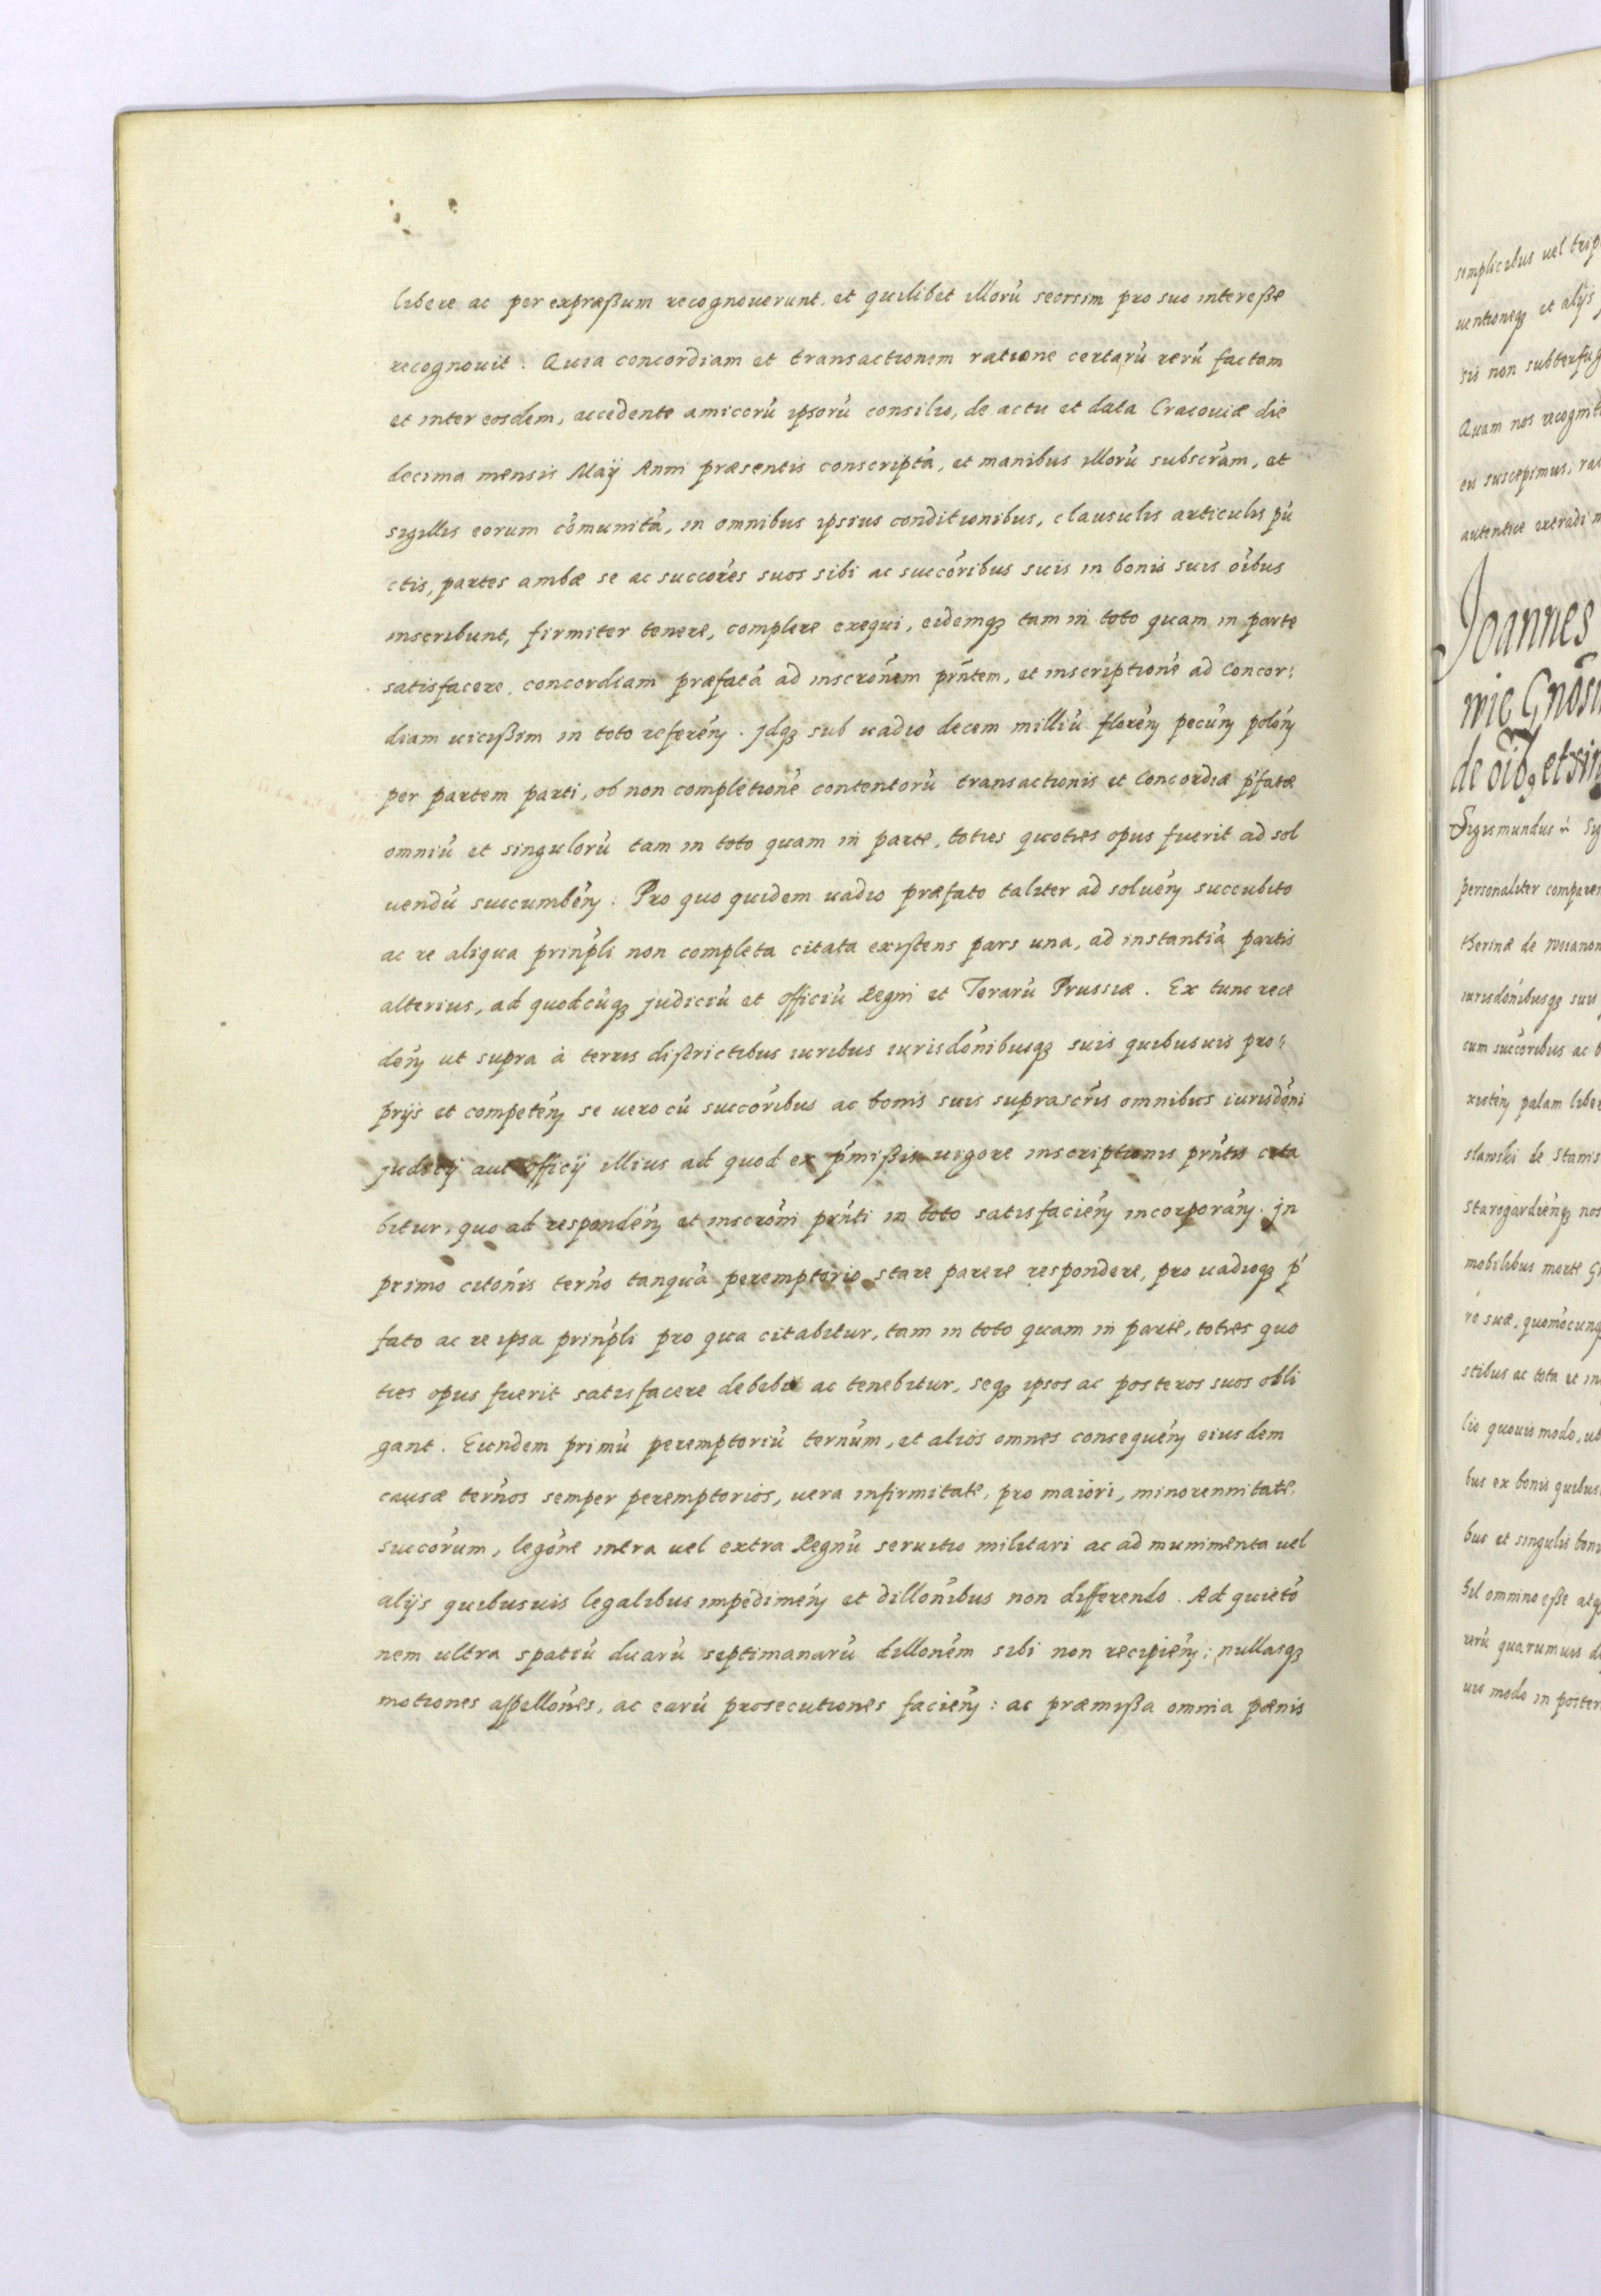 libere ac per expræßum recognouerunt. et quilibet illorú seorsim pro suo intereße
recognouit. Quia concordiam et transactionem ratione certarú rerú factam
et inter eosdem, accedente amicorú ipsorú consilio, de actu et data Cracouiæ die
decima mensis Maÿ Anni præsentis conscriptá, et manibus illorú subscr̃am, et
sigillis eorum cõmunitá, in omnibus ipsius conditionibus, clausulis articulis pũ
ctis, partes ambæ se ac succõres suos sibi ac succõribus suis in bonis suis oĩbus
inscribunt, firmiter tenere, complere exequi, eidemqꝫ tam in toto quam in parte
satisfacere, concordiam præfatá ad inscrõnem prñtem, et inscriptioné ad Concor:
diam uicißim in toto referéꝫ. Jdqꝫ sub uadio decem milliú floréꝫ pecúꝫ polóꝫ
per partem parti, ob non completioné contentorú transactionis et Concordiæ p̃fatæ
omniú et singulorú tam in toto quam in parte, toties quoties opus fuerit ad sol
uendú succumbéꝫ: Pro quo quidem uadio præfato taliter ad soluéꝫ succubito
ac re aliqua prinp̃li non completa citata existens pars una, ad instantiá partis
alterius, ad quodcúqꝫ judiciú et officiú Regni et Terarú Prussiæ. Ex tunc rece
déꝫ ut supra à terris districtibus iuribus iurisdõnibusqꝫ suis quibusuis pro:
prijs et competéꝫ se uero cú succõribus ac bonis suis suprascr̃is omnibus iurisdõni
judicij aut officij illius ad quod ex p̃mißis uigore inscriptionis prñtis cita
bitur, quo ad respondéꝫ et inscrõni prñti in toto satisfaciéꝫ incorporáꝫ. Jn
primo citõnis terño tanquá peremptorio stare parere respondere, pro uadioqꝫ p̃
fato ac re ipsa prinp̃li pro qua citabitur, tam in toto quam in parte, toties quo
ties opus fuerit satisfacere debebit ac tenebitur, seqꝫ ipsos ac posteros suos obli
gant. Eundem primú peremptoriú terñum, et alios omnes consequéꝫ eiusdem
causæ terños semper peremptorios, uera infirmitate, pro maiori, minorennitate,
succõrum, legõne intra uel extra Regnú seruitio militari ac ad munimenta uel
alijs quibusuis legalibus impediméꝫ et dillõnibus non differendo. Ad quietõ
nem ultra spatiú duarú septimanarú dillõnem sibi non recipiéꝫ; nullasqꝫ
motiones appellõnes, ac earú prosecutiones faciéꝫ: ac præmißa omnia pænis
simplicibus uel trip
uentioneqꝫ et alijs
sis non subterfug
Quam nos recogniti
eu suscepimus, ra
autentice extradi m
Joannes
de oibꝫ et sin
Sigismundus
personaliter comparen
iurisdõnibusqꝫ suis
cum succõribus ac b
xistéꝫ palam libe
slawski de Stanis
Starogardiéꝫ nos
mobilibus morte
suæ, quomõcunq
stibus ac tota et in
lio quouis modo, ub
bus ex bonis quibus
bus et singulis bon
hil omnino eße atqꝫ
rerú quarumuis
uis modo in poster